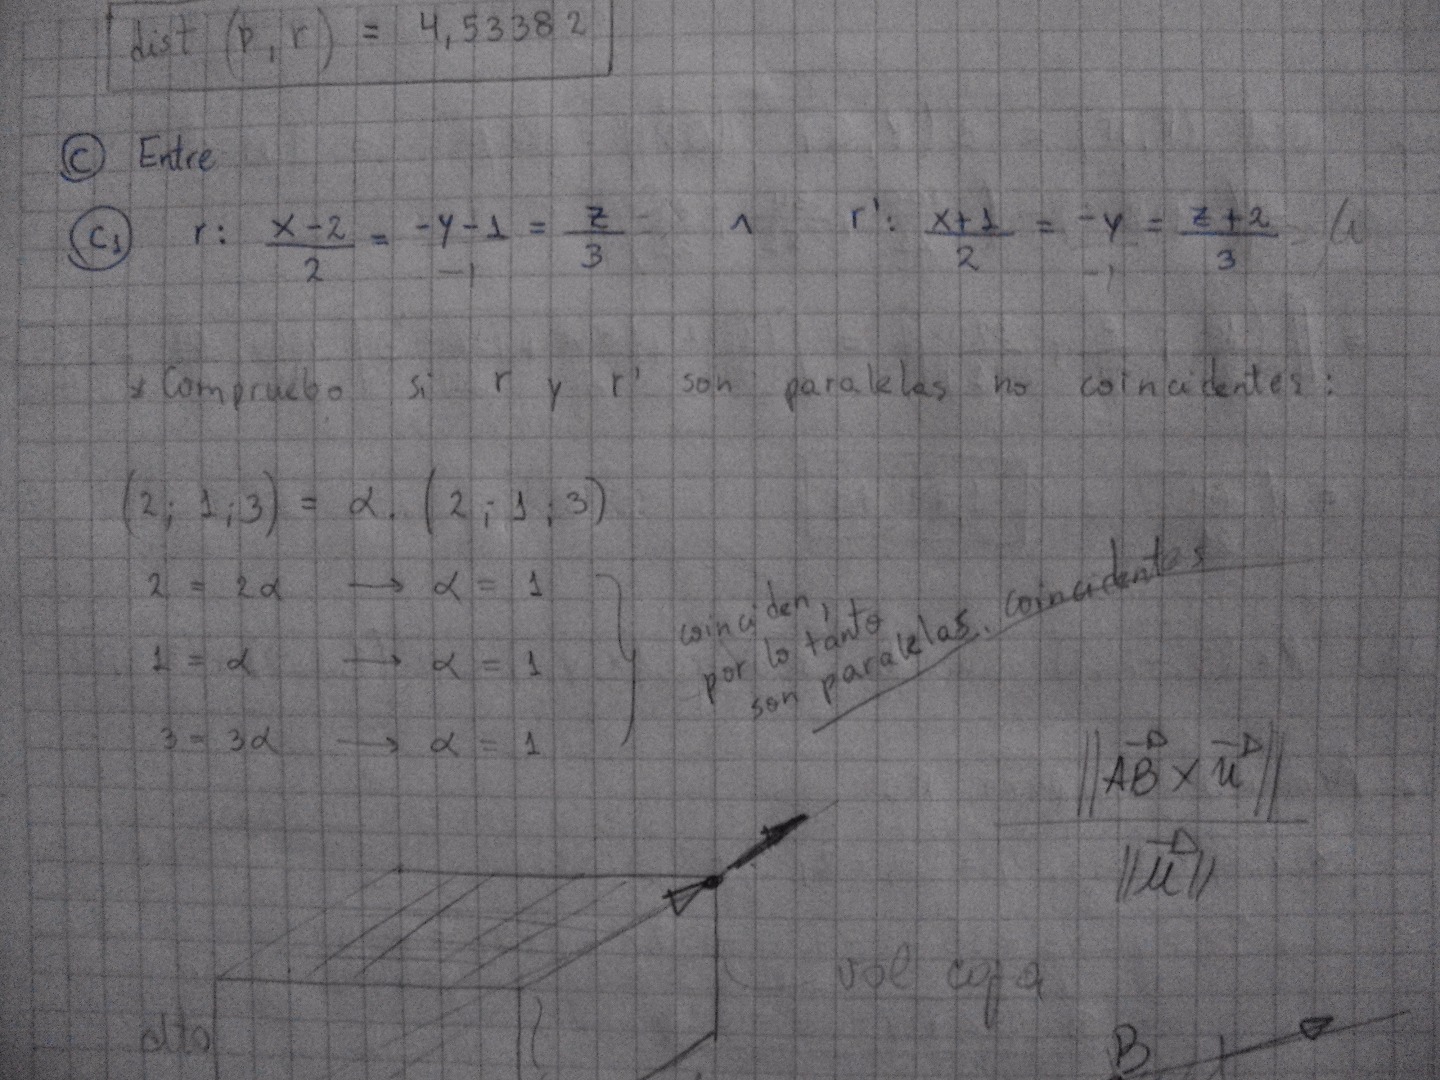 dist (p, r) = 4,53382
C Entre
C1 r: (x-2)/2 = (-y-1)/-1 = z/3 ∧ r': (x+1)/2 = -y/-1 = (z+2)/3
* Compruebo si r y r' son paralelas no coincidentes:
(2; 1; 3) = α. (2; 1; 3)
2 = 2α → α = 1
1 = α → α = 1
3 = 3α → α = 1
coinciden,
por lo tanto
son paralelas. coincidentes
||AB × u||
||u||
vol caja
alto
B